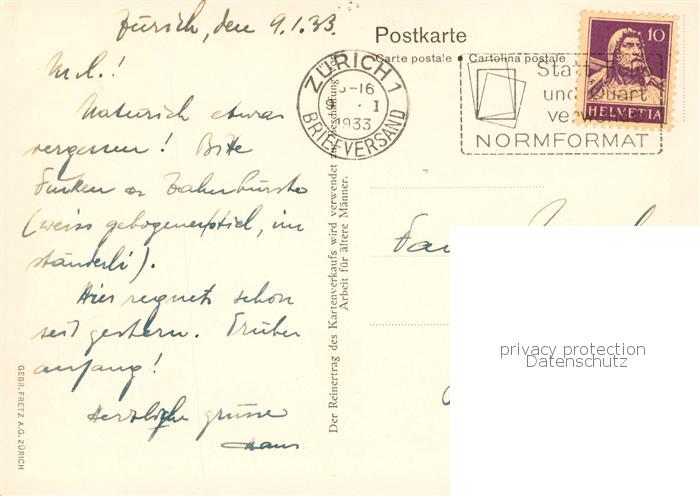 Zürich, den 9.1.33.
M. l.!
Natürich etwas
vergessen! Bitte
Zahnbürste
(weiss gebogener Stiel, im
ständerli).
Hier regnets schon
seit gestern. Trüber
anfang!
Herzliche grüsse
Hans
GEBR. FRETZ A.G. ZÜRICH
Der Reinertrag des Kartenverkaufs wird verwendet zur Beschaffung von
Arbeit für ältere Männer.
Postkarte
Carte postale • Cartolina postale
ZÜRICH 1
-16
9. I
1933
BRIEFVERSAND
Statt Folio
und Quart
verwendet
NORMFORMAT
10
HELVETIA
privacy protection
Datenschutz